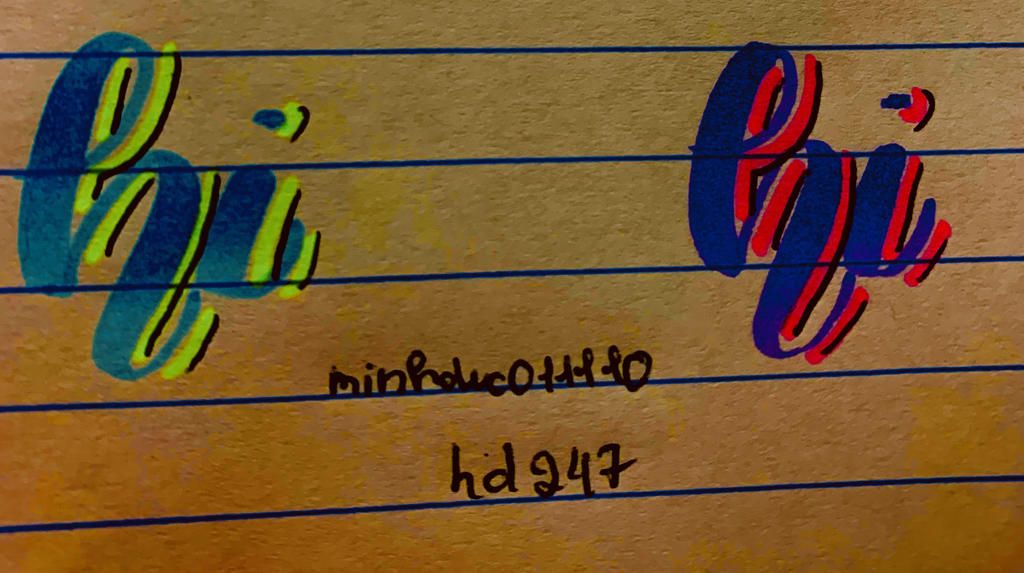 hi hi
minhduc011110
hd247